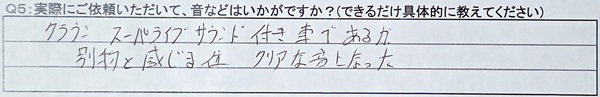 Q5:実際にご依頼いただいて、音などはいかがですか?(できるだけ具体的に教えてください)
クラウン スーパーライブサウンド付き車であるが
別物と感じる位 クリアな音となった